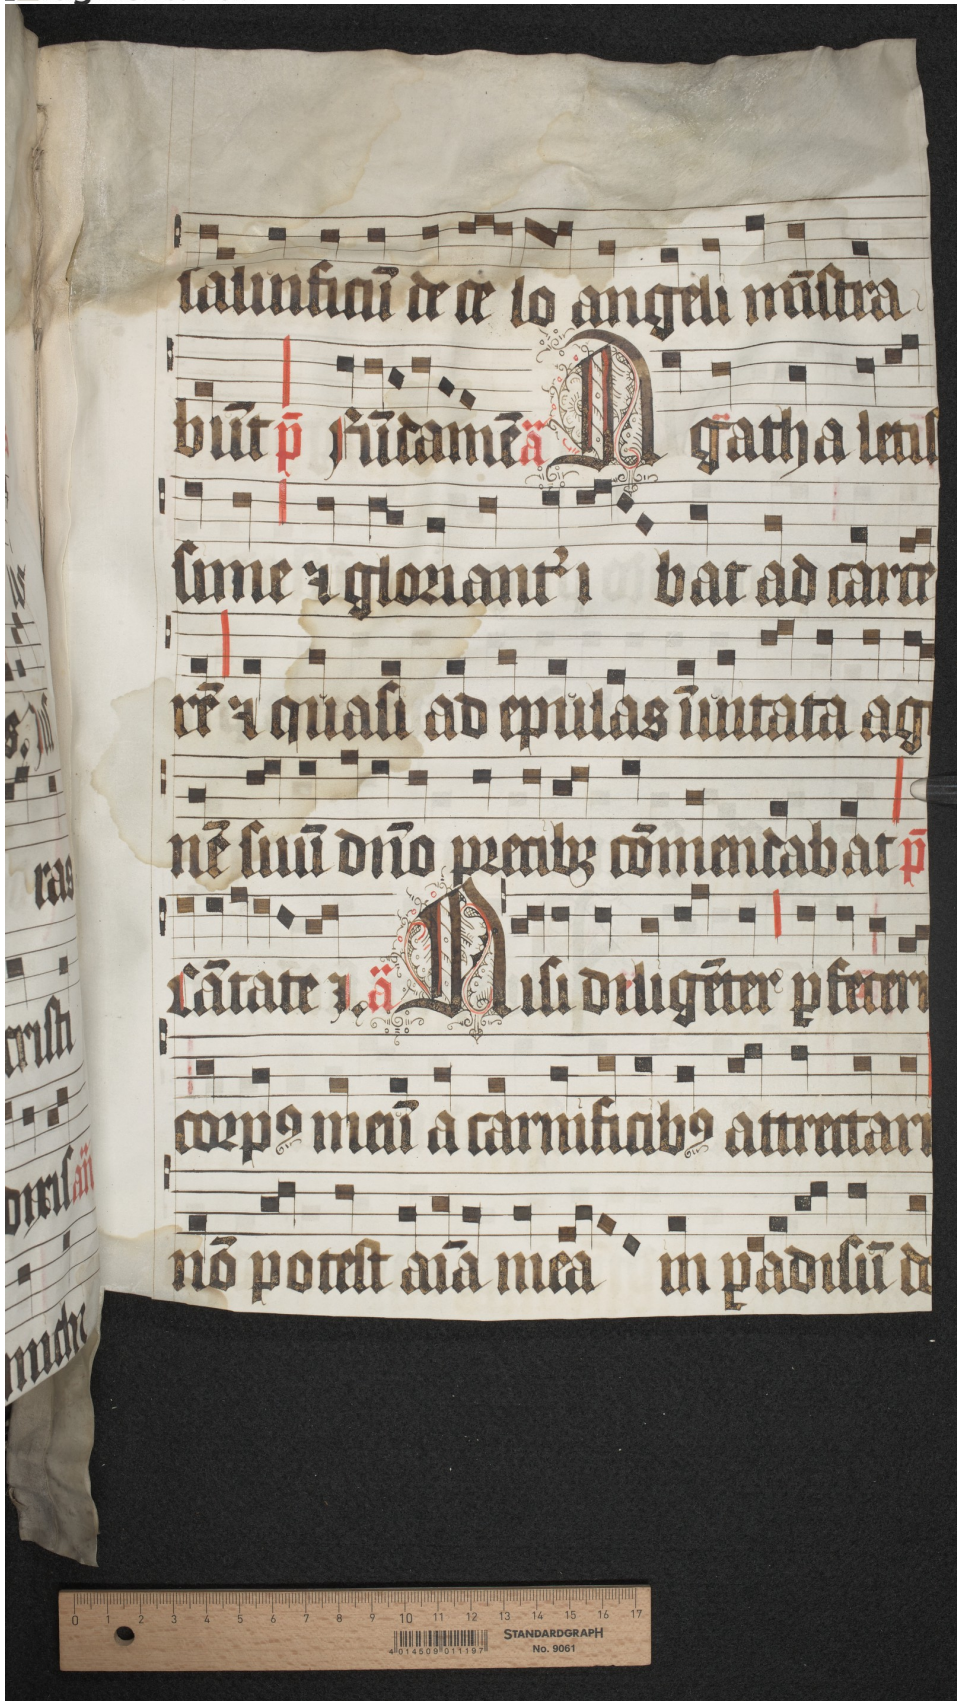 salutificū de ce lo angeli mīstra
būt p̄ Fūdamē a̅ Agatha letis
sime ⁊ glorianterꝰ i bat ad carce
rē ⁊ quasi ad epulas īuitata ag
nē suū dn̄o precibꝫ cōmendabat p̄
cātate ⁊. a̅ Nisi diligēter pfecer
corpꝰ meū a carnificibꝰ attrectari
nō potest aīa mea in padisū d
ras
cristi
an̄
michi
0 1 2 3 4 5 6 7 8 9 10 11 12 13 14 15 16 17
STANDARDGRAPH
No. 9061
4 014509 011197